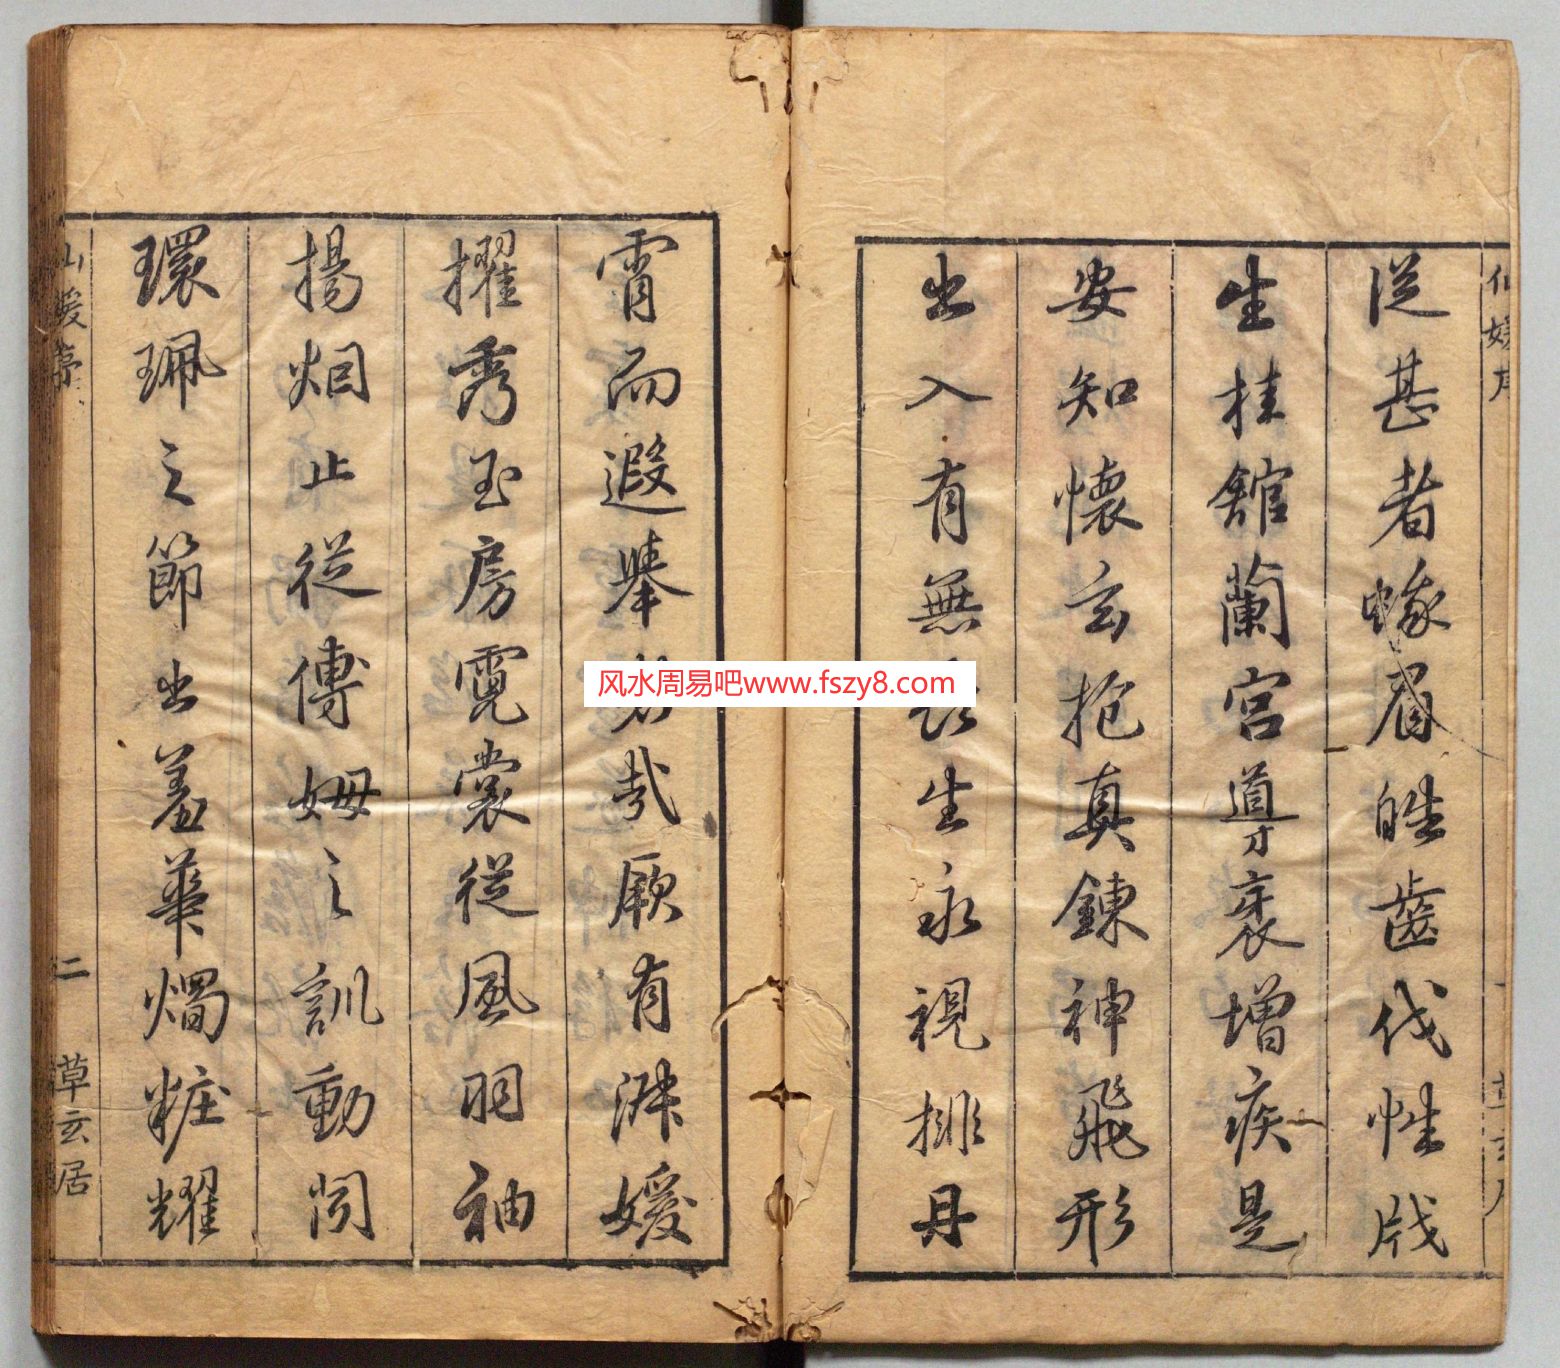 仙媛序
從甚者蛾眉皓齒伐性戕
生桂館蘭宮導褒增疾是
安知懷玄抱真鍊神飛形
出入有無長生永視排丹
霄而遐舉者哉厥有淋媛
擢秀玉房霓裳從風羽袖
揚烟止從傅姆之訓動閑
環珮之節出羞華燭粧耀
仙媛序
二
草玄居
风水周易吧www.fszy8.com